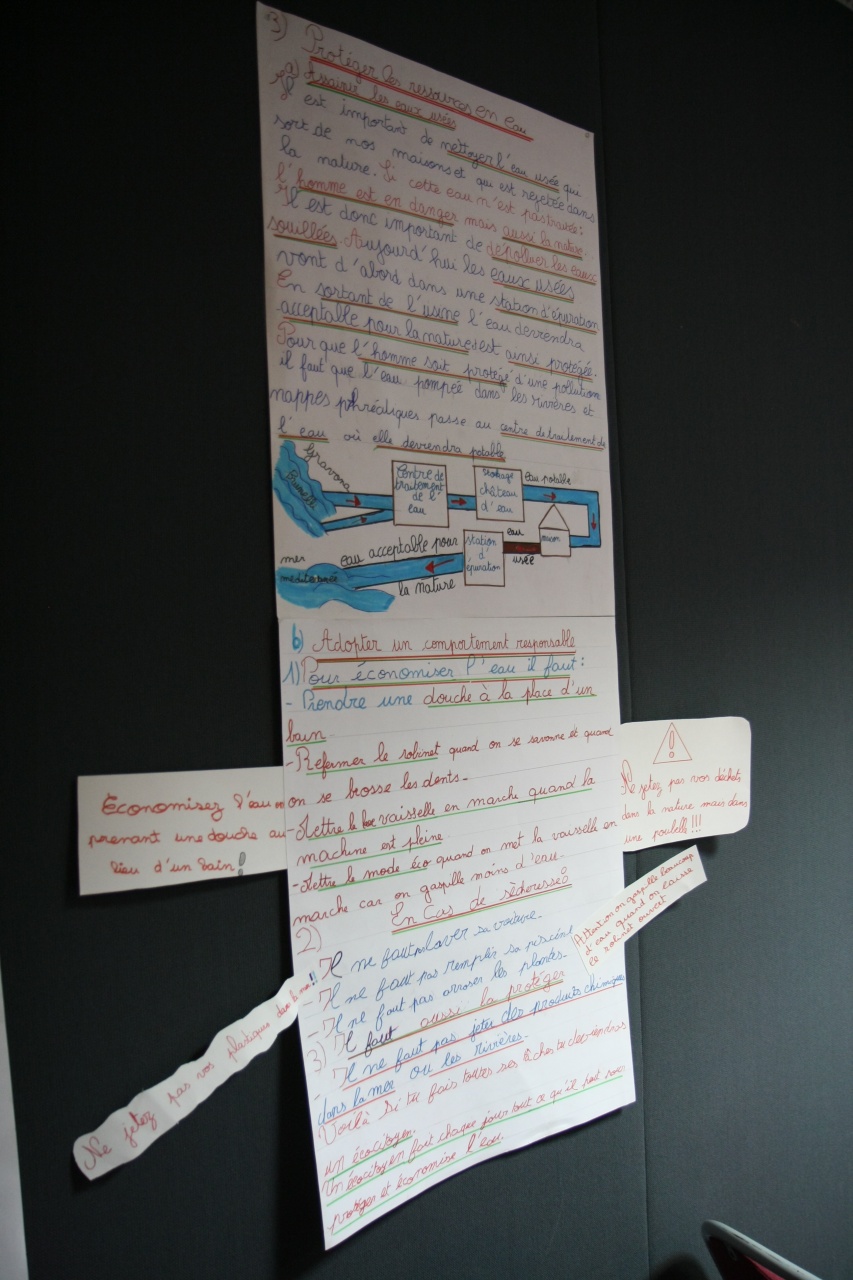 3) Protéger les ressources en eau
a) Assainir les eaux usées
Il est important de nettoyer l'eau usée qui
sort de nos maisons et qui est rejetée dans
la nature. Si cette eau n'est pas traitée:
l'homme est en danger mais aussi la nature.
Il est donc important de dépolluer les eaux
souillées. Aujourd'hui les eaux usées
vont d'abord dans une station d'épuration
En sortant de l'usine l'eau devrendra
acceptable pour la nature est ainsi protégée.
Pour que l'homme soit protégé d'une pollution
il faut que l'eau pompée dans les rivières et
nappes phréatiques passe au centre de traitement de
l'eau où elle devrendra potable
Gravona
Prunelli
Centre de
traitement
de l'
eau
stockage
château
d'eau
eau potable
maison
eau
usée
station
d'
épuration
eau acceptable pour
la nature
mer
méditerranée
b) Adopter un comportement responsable
1) Pour économiser l'eau il faut:
- Prendre une douche à la place d'un
bain.
- Refermer le robinet quand on se savonne et quand
on se brosse les dents.
- Mettre le vaisselle en marche quand la
machine est pleine.
- Mettre le mode éco quand on met la vaisselle en
marche car on gaspille moins d'eau.
2) En Cas de sècheresse
- Il ne faut pas laver sa voiture.
- Il ne faut pas remplir sa piscine
- Il ne faut pas arroser les plantes.
3) Il faut aussi la protéger
- Il ne faut pas jeter des produits chimiques
dans la mer ou les rivières.
Voilà si tu fais toutes ses tâches tu deviendras
un écocitoyen.
Un écocitoyen fait chaque jour tout ce qu'il peut pour
protéger et économise l'eau.
Économisez l'eau en
prenant une douche au
lieu d'un bain!
!
Ne jetez pas vos déchets
dans la nature mais dans
une poubelle!!!
Attention on gaspille beaucoup
d'eau quand on laisse
le robinet ouvert
Ne jetez pas vos plastiques dans la mer!!